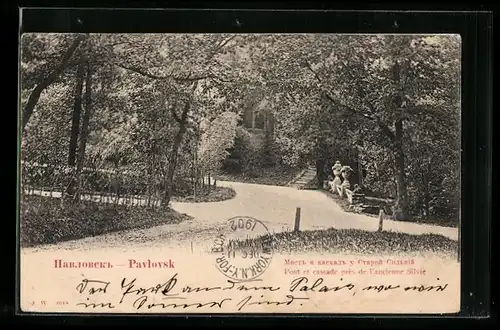 Павловскъ — Pavlovsk
Мостъ и каскадъ у Старой Сильвіи
Pont et cascade près de l'ancienne Silvie
1902
Der Park an dem Palais, wo wir
im Sommer sind.